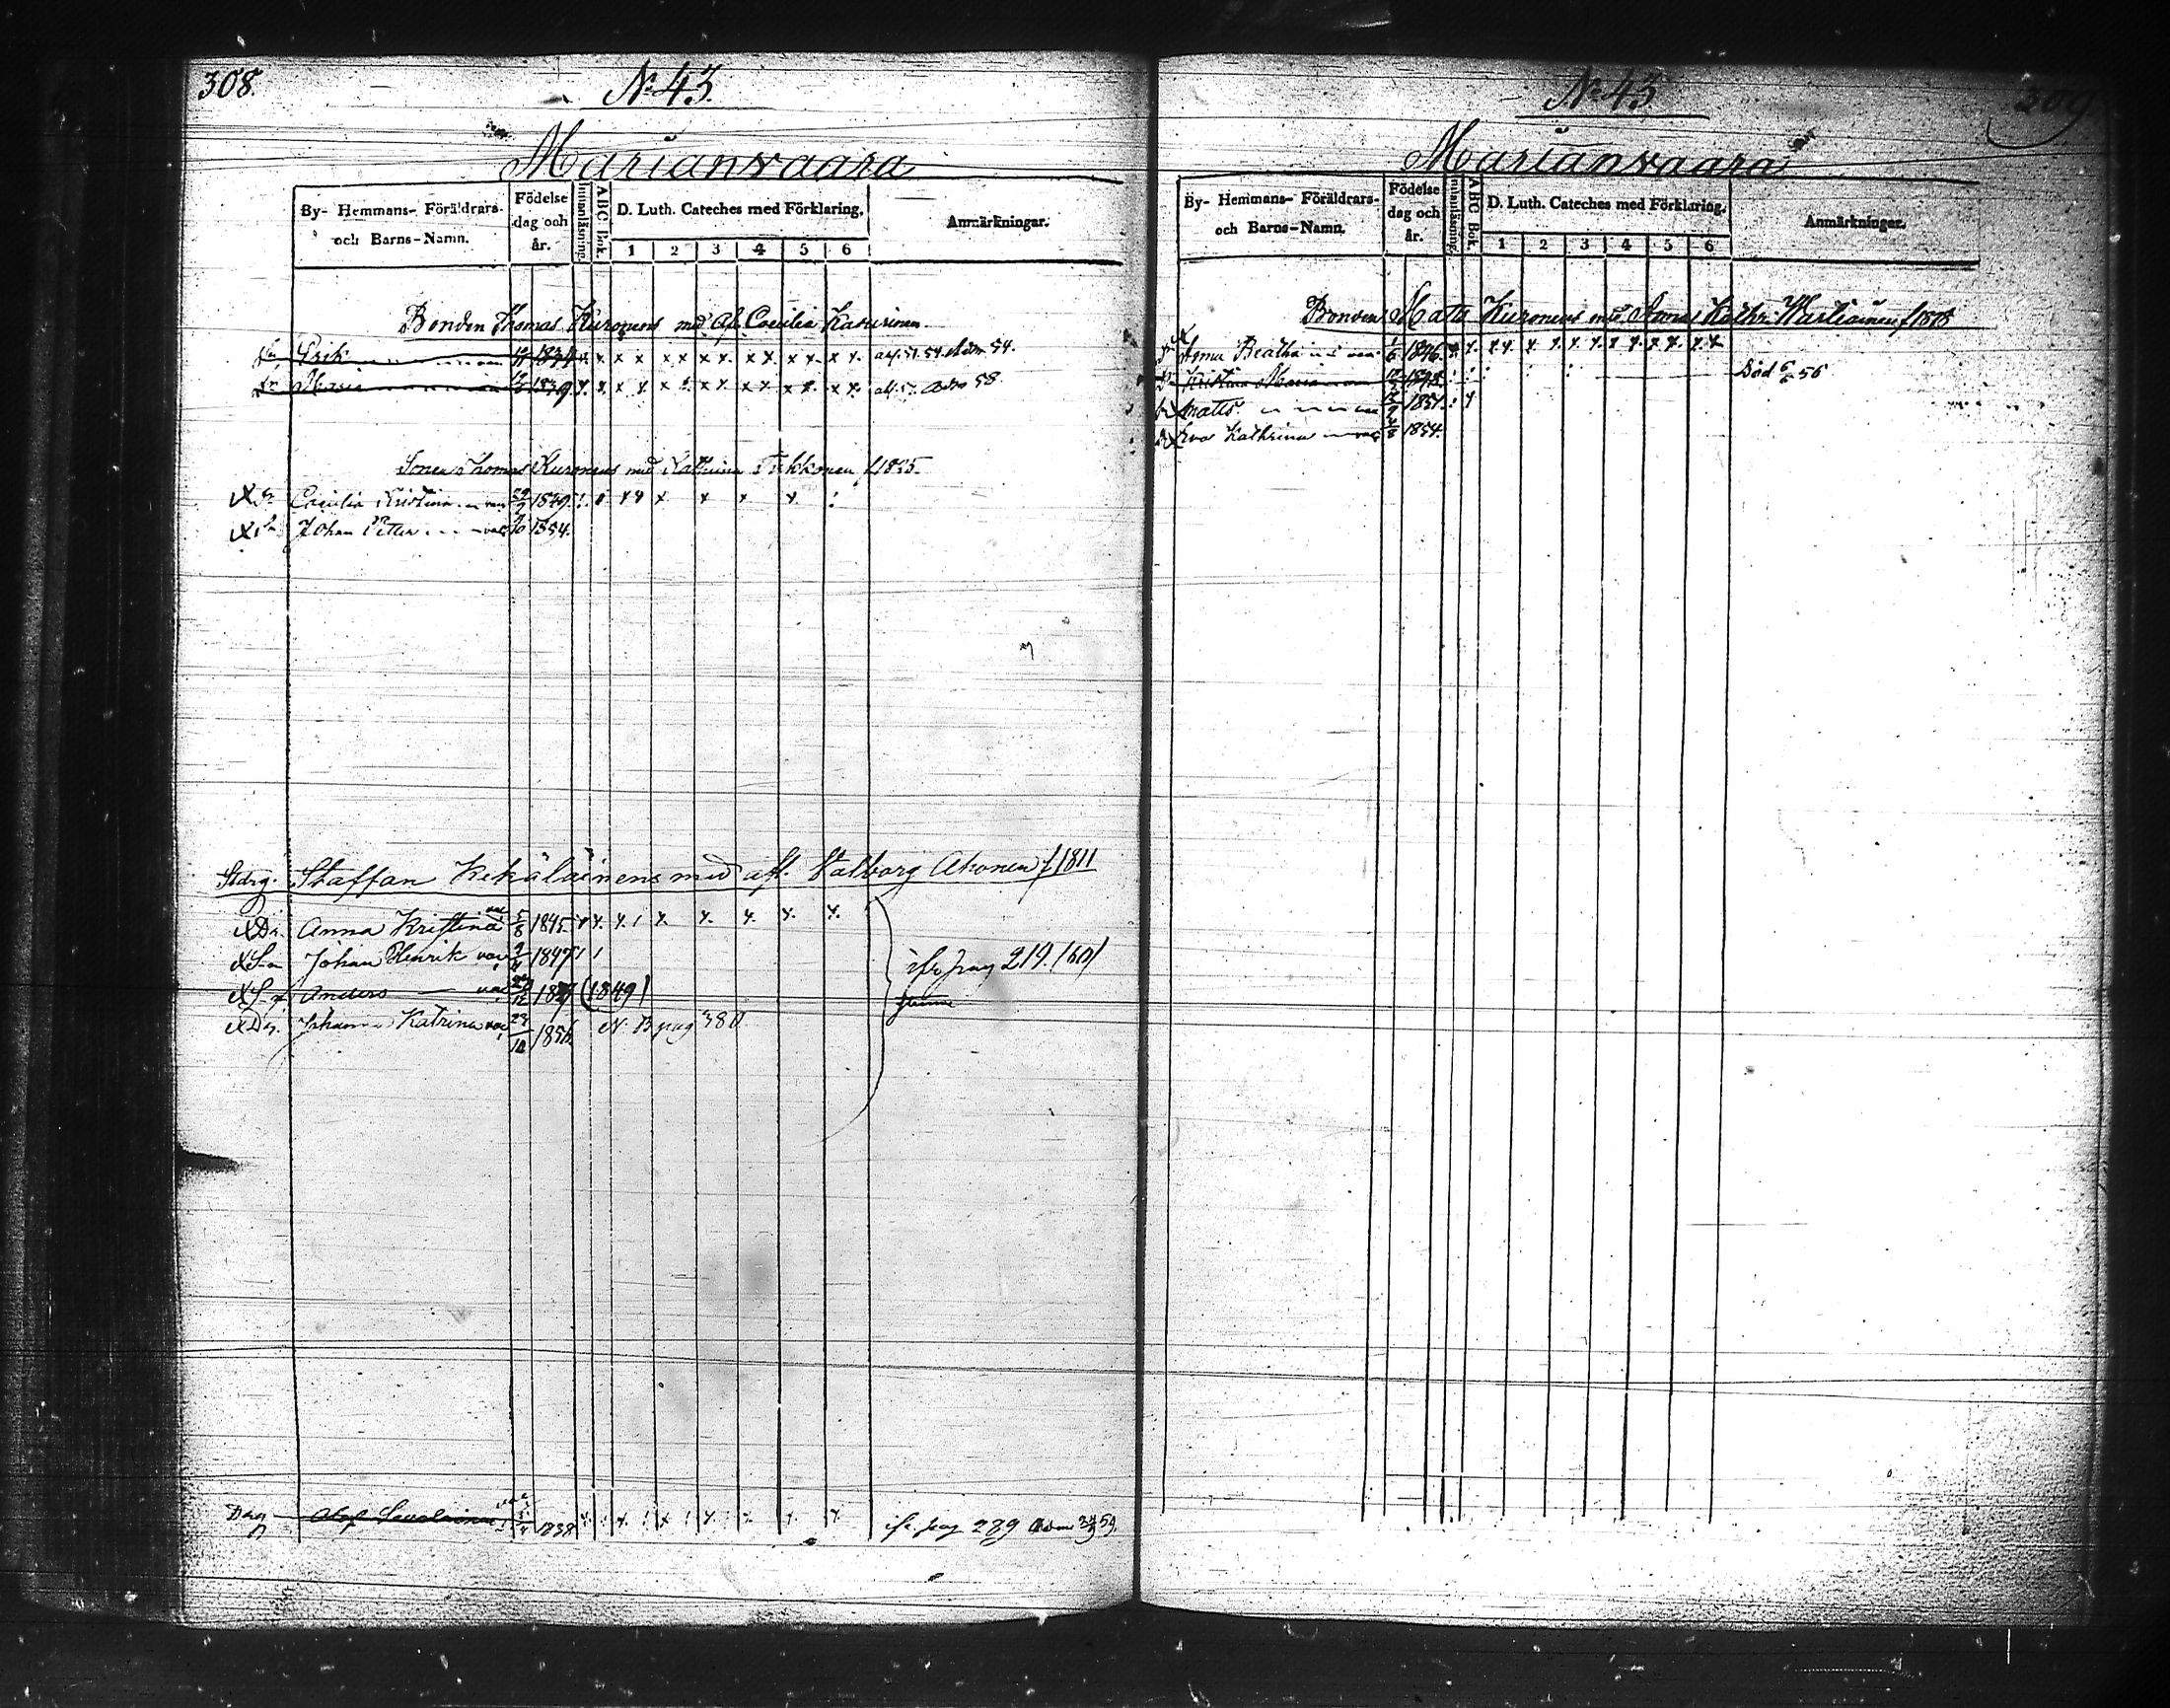 308.
No 43.
Marianvaara
By- Hemmans- Föräldrars-
och Barns-Namn.
Födelse
dag och
år.
Innanläsning.
ABC Bok.
D. Luth. Cateches med Förklaring.
1 2 3 4 5 6
Anmärkningar.
Bonden Thomas Kuronens med Af. Coecilia Kasurinen.
Sn Erik 1834 x x x x x x x x x x x x x adm 54.
Dr Maria 1839 x x x x x x x x x x x x adm 58
Sonen Thomas Kuronens med Katrina Tikkonen f 1825.
X Dr Coecilia Kristina 1849 x x x x x x
X Sn Johan Petter 1854.
Stdrg. Staffan Kekäläinens med afl. Valborg Ahonen f 1811
X Dr. Anna Kristina var 5/8 1845 x x. x. x. x. x. x. x.
X Sn Johan Henrik var 1847
X Sn Anders var 12 (1849)
ifr pag 219. (60)
X Dr. Johanna Katrina var 23/10 1856. N.B pag 380
Dräg Olof Savolainen 1838 x x x x x x ifr. pag 289
No 43
309
Marianvaara
By- Hemmans- Föräldrars-
och Barns-Namn.
Födelse
dag och
år.
Innanläsning.
ABC Bok.
D. Luth. Cateches med Förklaring.
1 2 3 4 5 6
Anmärkningar.
Bonden Mats Kuronens med Anna Kathr. Wartiainen f 1818
Anna Beatha 1/6 1846. x. x x. x x. x x. x x. x x. x x
Kristina Maria död 6/6 56
Matts 1851.
Eva Kathrina 1854.